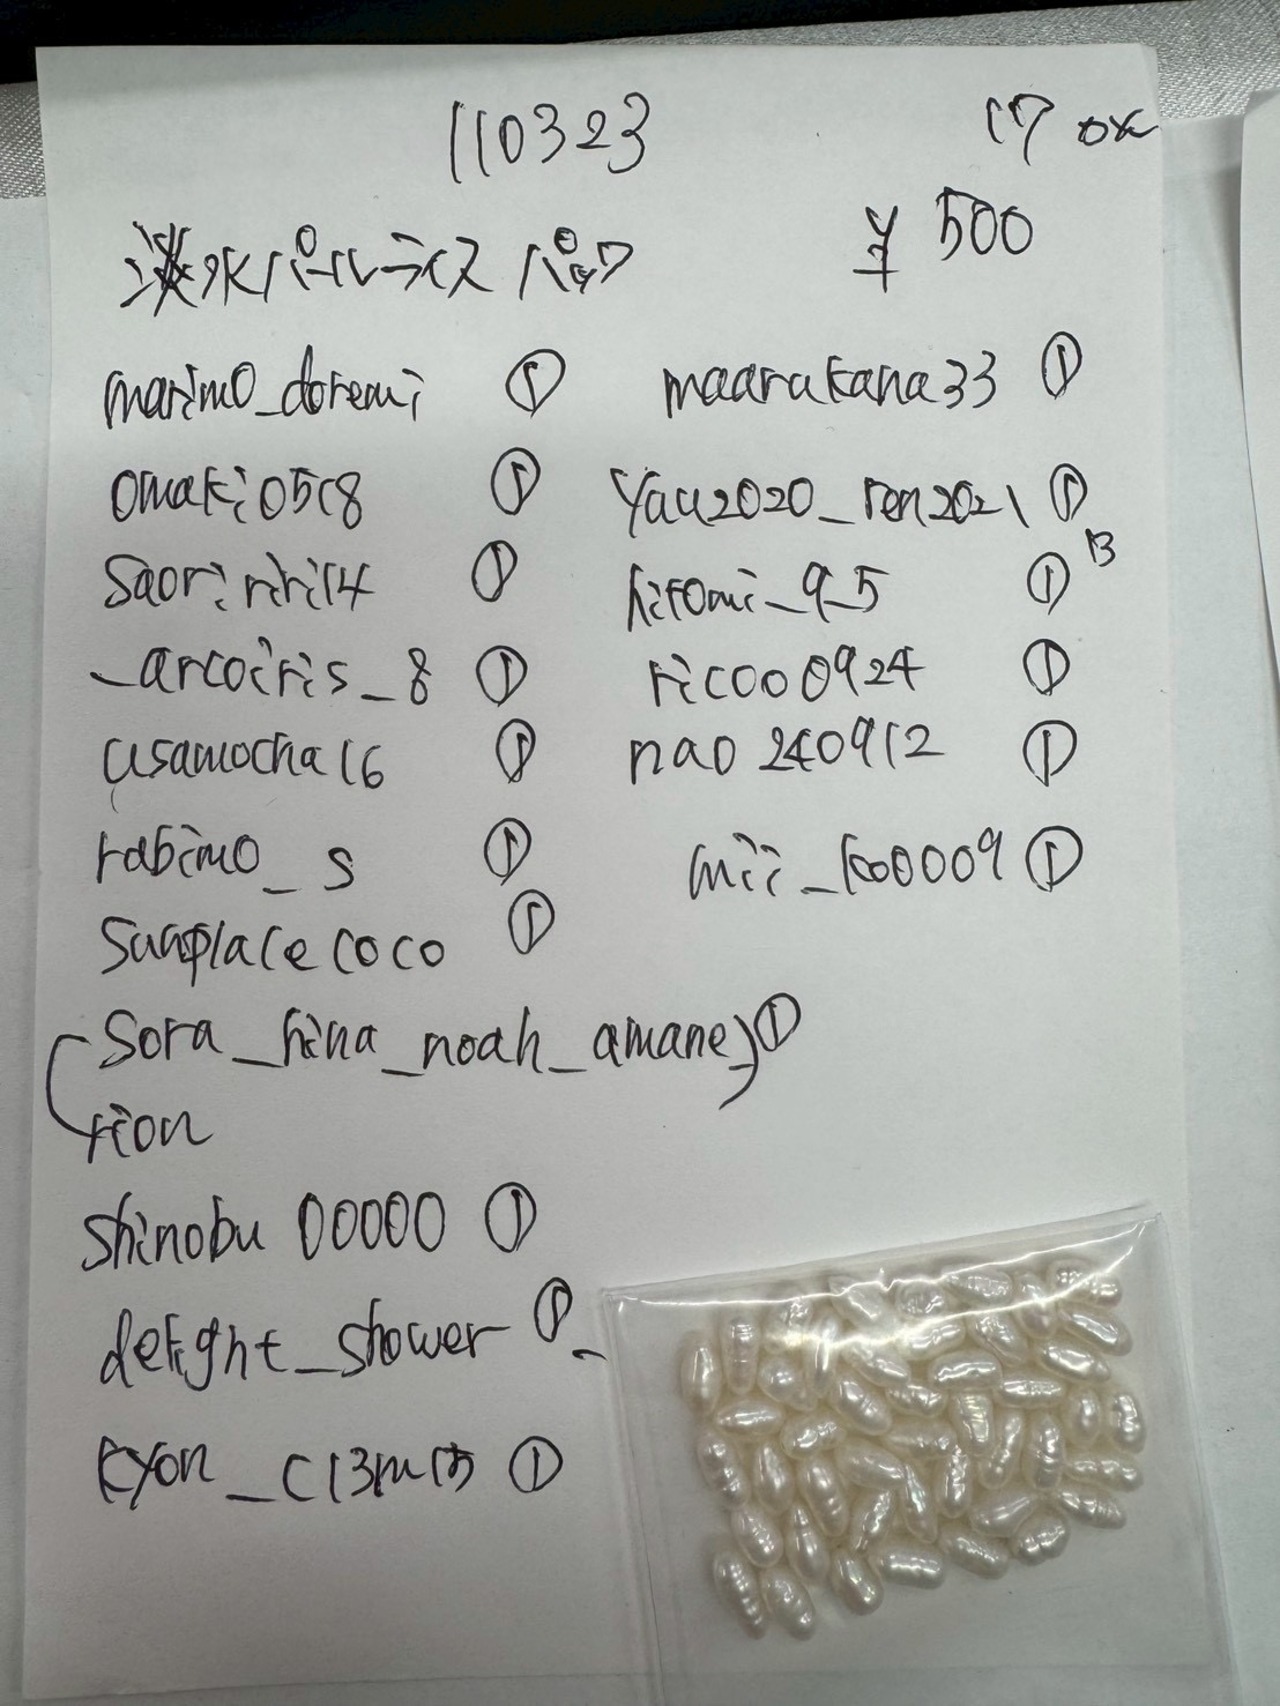 110323
17 ok
淡水パールライス パック ¥500
marimo_doremi ①
omaki0518 ①
saoririri14 ①
_arcoiris_8 ①
usamocha16 ①
rabimo_s ①
sunplacecoco ①
sora_hina_noah_amane_ ①
rion
shinobu00000 ①
delight_shower ①
maarukana33 ①
yau2020_ren2021 ①
13
hitomi_9_5 ①
ricooo0924 ①
nao240912 ①
mii_koo0009 ①